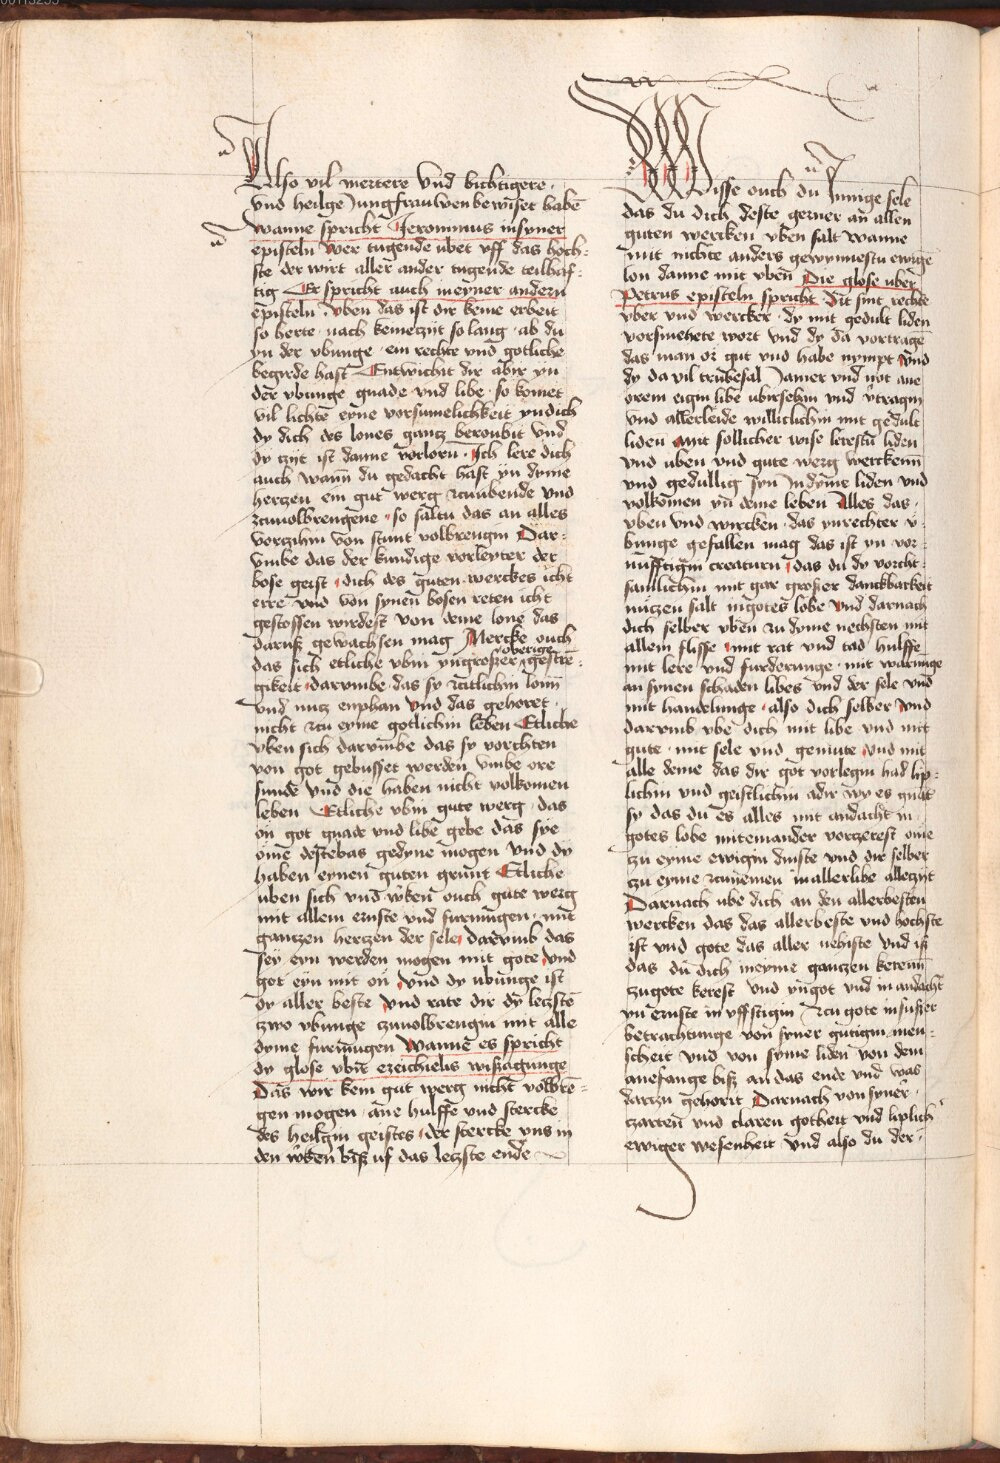 Also vil mertere vnd bichtigere ·
vnd heilge Jungfrauwen bewiset habē
wanne spricht Jeronimus in syner
episteln wer tugende ubet vff das hoch-
ste der wirt aller ander tugende teilhaf-
tig Er spricht auch in eyner andern
episteln · vben das ist dir keine erbeit
so herte · nach keine tzijt so lang · ab du
yn der vbunge · ein rechte vnd gotliche
begirde hast Entwicht dir abir yn
der vbunge gnade vnd libe · so komet
vil lichte eyne vorsumelichkeit yn dich
dy dich des lones gantz beroubit vnd
dy tzijt ist danne vorlorn · Ich lere dich
auch wann du gedacht hast yn dyme
hertzen ein gut werg tzu ubende vnd
tzuuolbrengene · so saltu das an alles
vortzihin von stunt volbrengin Dar-
vmbe das der kundige vorleyter der
bose geist · dich des guten werckes icht
erre vnd von synen bosen reten icht
gestossen wirdest von deme lone das
daruß gewachsen mag Mercke ouch
das sich etliche vbin yn großer oberige gestre-
gikeit · darvmbe das sy tzitlichin lonn
vnd nutz enphan vnd das gehoret ·
nicht tzu eyme gotlichin leben Etliche
vben sich darvmbe das sy vorchten
von got gebusset werden vmbe ore
sunde vnd die haben nicht volkomen
leben Etliche vbin gute werg · das
on got gnade vnd libe gebe das sye
ome destebas gedyne mogen vnd dy
haben eynen guten grunt Etliche
uben sich vnd wirken ouch gute werg
mit allem ernste vnd furmugen · mit
gantzen hertzen der sele · darvmb das
sey eyn werden mogen mit gote vnd
got eyn mit on · vnd dy ubunge ist
dy aller beste vnd rate dir dy letzste
zwo vbunge zuuolbrengin mit alle
dyme furmugen Wanne es spricht
dy glose vbir ezeichielis wißagunge
Das wir kein gut werg nicht volbre-
gen mogen · ane hulffe vnd stercke
des heilgin geistes · der stercke vns in
den wirken biß uf das letzste ende
Wisse ouch du Innige sele
das du dich deste gerner an allen
guten wercken vben salt Wanne
mit nichte anders gewynnestu ewige
lon danne mit vben Die glose uber
Petrus episteln spricht · Dit sint rechte
vber und wercker · dy mit gedult liden
vorsmehete wort vnd dy da vortrage
das man or gut vnd habe nympt vnd
dy da vil trubesal Jamer vnd not ane
orem eigin libe ubirsehin vnd vtragin
vnd allerleide williclichin mit gedult
liden · mit sollicher wise lerestu liden
vnd uben vnd gute werg werckenn
vnd gedullig syn In dyme liden vnd
volkomen yn deme leben Alles das ·
vben vnd wircken · das yn rechter v-
bunge gefallen mag das ist yn vor-
nufftigin creaturn · das du dy vorcht-
samlichin mit gar großer danckbarkeit
nutzen salt in gotes lobe vnd darnach
dich selber vben zu dyme nechsten mit
allem flisse · mit rat vnd tad hulffe
mit lere vnd furderunge · mit warunge
an synen schaden libes vnd der sele vnd
mit handelunge · also dich selber vnd
darvmb vbe dich mit libe vnd mit
gute · mit sele vnd gemute vnd mit
alle deme das dir got vorlegin had lip-
lichin vnd geistlichin adir wy es gnat
sy das du es alles mit andacht in ·
gotes lobe miteinander vortzerest ome
tzu eyme ewigin dinste vnd dir selber
tzu eyme tzunemen in aller libe alletzijt
Darnach ube dich an den allerbesten
wercken das das allerbeste vnd hochste
ist vnd gote das aller nehiste vnd ist
das du dich in eyme gantzen kerenn
zu gote kerest vnd yn got vnd in andacht
yn ernste in vffstigin tzu gote in sußer
betrachtunge von syner gutigin men-
scheit vnd von syme liden von dem
anefange biß an das ende vnd was
dartzu gehorit Darnach von syner ·
tzarten vnd claren gotheit vnd liplich
ewiger wesenheit vnd also du der-